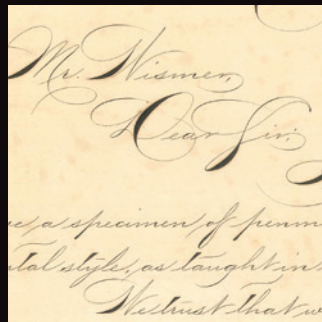 Mr. Wismer,
Dear Sir:
a specimen of penm
tal style, as taught in
We trust that w